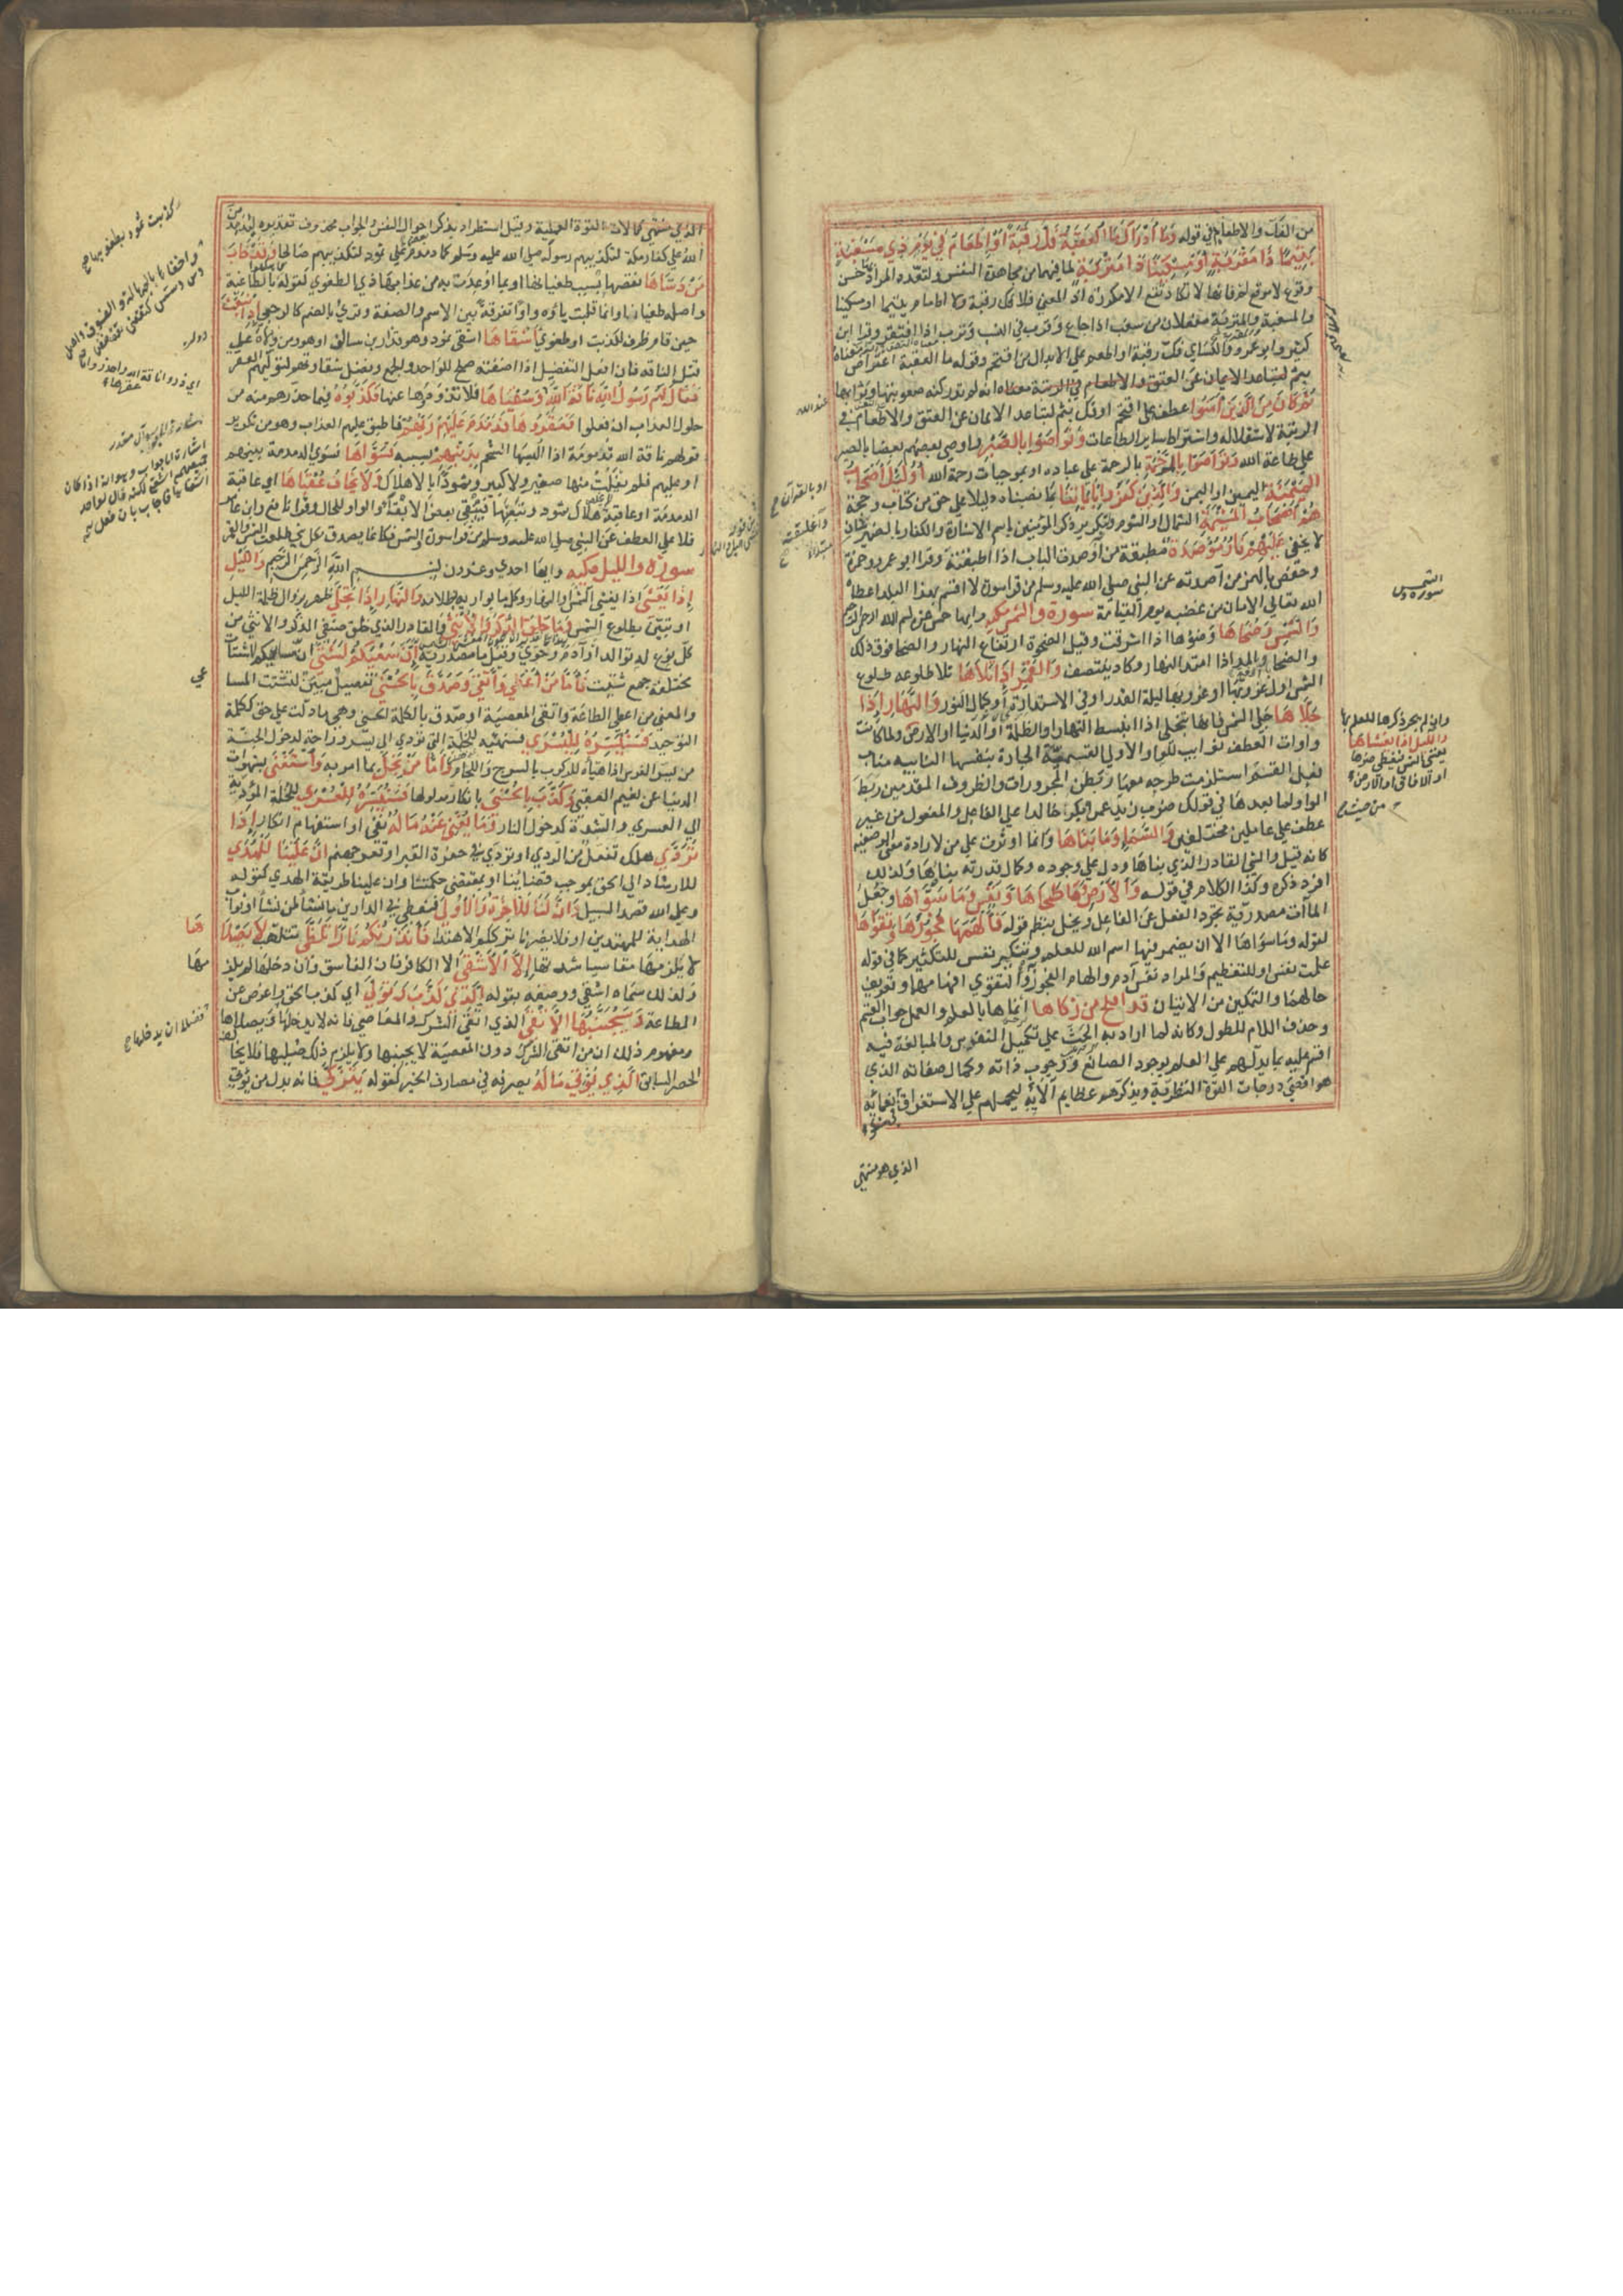 من الفك والاطعام في قوله وما أدراك ما العقبة فك رقبة أو إطعام في يوم ذي مسغبة
يتيما ذا مقربة أو مسكينا ذا متربة لما فيهما من مجاهدة النفس ولتعدد المراد بها حسن
وقوع لا موقع لم فانها لا تكاد تقع الا مكررة اذ المعنى فلا فك رقبة ولا اطعام يتيما او مسكينا
والمسغبة والمقربة والمتربة مفعلات من سغب اذا جاع وقرب في النسب وترب اذا افتقر وقرا ابن
كثير وابو عمرو والكساي فك رقبة او اطعم على الابدال من اقتحم وقوله وما العقبة اعتراض معناه
انك لم تدر كنه صعوبتها وثوابها
ثم كان من الذين آمنوا عطف على اقتحم او فك بثم لتباعد الايمان عن العتق والاطعام في
الرتبة لاستقلاله واشتراط ساير الطاعات به وتواصوا بالصبر واوصى بعضهم بعضا بالصبر
على طاعة الله وتواصوا بالمرحمة بالرحمة على عباده او بموجبات رحمة الله أولئك أصحاب
الميمنة اليمين او اليمن والذين كفروا بآياتنا بما نصبناه دليلا على حق من كتاب وحجة
هم أصحاب المشئمة الشمال او الشوم ولتكرير ذكر المؤمنين باسم الاشارة والكفار بالضمير شان
لا يخفى عليهم نار مؤصدة مطبقة من اوصدت الباب اذا اطبقته وقرا ابو عمرو وحمزة
وحفص بالهمز من آصدته عن النبي صلى الله عليه وسلم من قرا سورة لا اقسم بهذا البلد اعطاه
الله تعالى الامان من غضبه يوم القيامة سورة والشمس مكية وايها خمس عشرة بسم الله الرحمن الرحيم
والشمس وضحاها وضوءها اذا اشرقت وقيل الضحوة ارتفاع النهار والضحى فوق ذلك
والضحاء بالمد اذا امتد النهار وكاد ينتصف والقمر إذا تلاها تلا طلوعه طلوع
الشمس اول الشهر او غروبها ليلة البدر او في الاستدارة وكمال النور والنهار إذا
جلاها جلى الشمس فانها تتجلى اذا انبسط النهار او الظلمة او الدنيا او الارض ولما كانت
واوات العطف نوايب للواو الاولى القسمية الجارة بنفسها النايبة مناب
فعل القسم استلزمت طرحه معها ربطن المجرورات والظروف المقدمين ربط
الواو لما بعدها في قولك ضرب زيد عمرا وبكر خالدا على الفاعل والمفعول من غير
عطف على عاملين مختلفين والسماء وما بناها وانما اوثرت على من لارادة معنى الوصفية
كانه قيل والشي القادر الذي بناها ودل على وجوده وكمال قدرته بناؤها ولذلك
افرد ذكره وكذا الكلام في قوله والأرض وما طحاها ونفس وما سواها وجعل
الماآت مصدرية يجرد الفعل عن الفاعل ويخل بنظم قوله فألهمها فجورها وتقواها
لقوله وما سواها الا ان يضمر فيها اسم الله للعلم به وتنكير نفس للتكثير كما في قوله
علمت نفس او للتعظيم والمراد نفس آدم والهام الفجور والتقوى افهامهما وتعريف
حالهما والتمكين من الاتيان قد أفلح من زكاها انماها بالعلم والعمل جواب القسم
وحذف اللام للطول وكانه لما اراد به الحث على تكميل النفوس والمبالغة فيه
اقسم عليه بما يدلهم على العلم بوجود الصانع ووجوب ذاته وكمال صفاته الذي
هو اقصى درجات القوة النظرية ويذكرهم عظايم آلائه ليحملهم على الاستغراق
الذي هو منتهى
او بالقرآن
سورة والشمس
وان لم يجر ذكرها للعلم بها
والليل اذا يغشاها
يغشى الشمس فيغطي ضوءها
او الافاق او الارض
من حيث
الذي منتهى كمالات القوة العملية وقيل استطراد بذكر احوال النفس والجواب محذوف تقديره ليدمدمن
الله على كفار مكة لتكذيبهم رسوله صلى الله عليه وسلم كما دمدم على ثمود لتكذيبهم صالحا وقد خاب
من دساها نقصها
كذبت ثمود بطغواها بسبب طغيانها او بما اوعدت به من عذابها ذي الطغوى كقوله فاهلكوا بالطاغية
واصله طغياها وانما قلبت ياؤه واوا تفرقة بين الاسم والصفة وقرئ بالضم كالرجعى إذ انبعث
حين قام ظرف لكذبت او طغوى أشقاها اشقى ثمود وهو قدار بن سالف او هو ومن والاه على
قتل الناقة فان افعل التفضيل اذا اضفته صلح للواحد والجمع وفضل شقاوتهم لتوليهم العقر
فقال لهم رسول الله ناقة الله وسقياها فلا تذودوها عنها فكذبوه فيما حذرهم منه من
حلول العذاب ان فعلوا فعقروها فدمدم عليهم ربهم فاطبق عليهم العذاب وهو من تكرير
قولهم ناقة الله مدمومة اذا البسها الشحم بذنبهم بسببه فسواها فسوى الدمدمة بينهم
او عليهم فلم يفلت منها صغير ولا كبير او ثمود بالاهلاك ولا يخاف عقباها اي عاقبة
الدمدمة او عاقبة هلاك ثمود وتبعتها فيبقي بعض الابقاء والواو للحال وقرا نافع وابن عامر
فلا على العطف عن النبي صلى الله عليه وسلم من قرا سورة والشمس فكانما تصدق بكل شي طلعت الشمس والقمر
سورة والليل مكية وايها احدى وعشرون بسم الله الرحمن الرحيم والليل
إذا يغشى اذا يغشى الشمس او النهار او كل ما يواريه بظلامه والنهار إذا تجلى ظهر بزوال ظلمة الليل
او تبين بطلوع الشمس وما خلق الذكر والأنثى والقادر الذي خلق صنفي الذكر والانثى من
كل نوع له توالد او آدم وحوى وقيل ما مصدرية إن سعيكم لشتى ان مساعيكم لاشتات
مختلفة جمع شتيت فأما من أعطى واتقى وصدق بالحسنى تفصيل مبين لتشتت المسا
عي
والمعنى من اعطى الطاعة واتقى المعصية او صدق بالكلمة الحسنى وهي ما دلت على حق ككلمة
التوحيد فسنيسره لليسرى فسنهيئه للخلة التي تودي الى يسر وراحة لدخول الجنة
من يسر الفرس اذا هيأه للركوب بالسرج واللجام وأما من بخل بما امر به واستغنى بشهوات
الدنيا عن نعيم العقبى وكذب بالحسنى بانكار مدلولها فسنيسره للعسرى للخلة المؤدية
الى العسرى والشدة كدخول النار وما يغني عنه ماله نفي او استفهام انكار إذا
تردى هلك تفعل من الردى او تردى في حفرة القبر او قعر جهنم إن علينا للهدى
للارشاد الى الحق بموجب قضاينا او بمقتضى حكمتنا وان علينا طريقة الهدى كقوله
وعلى الله قصد السبيل وإن لنا للآخرة والأولى فنعطي في الدارين ما نشاء لمن نشاء او ثواب
الهداية للمهتدين او فلا يضرنا ترككم الاهتداء فأنذرتكم نارا تلظى تتلهب لا يصلا
ها
لا يلزمها مقاسيا شدتها إلا الأشقى الا الكافر فان الفاسق وان دخلها لم يلز
مها
ولذلك سماه اشقى ووصفه بقوله الذي كذب وتولى اي كذب بالحق واعرض عن
الطاعة وسيجنبها الأتقى الذي اتقى الشرك والمعاصي فانه لا يدخلها ويصلاها
فضلا ان يدخلها
ومفهوم ذلك ان من اتقى الشرك دون المعصية لا يجنبها ولا يلزم ذلك صليها فلا يخا
الحصر السابق الذي يؤتي ماله يصرفه في مصارف الخير لقوله يتزكى فانه بدل من يؤتي